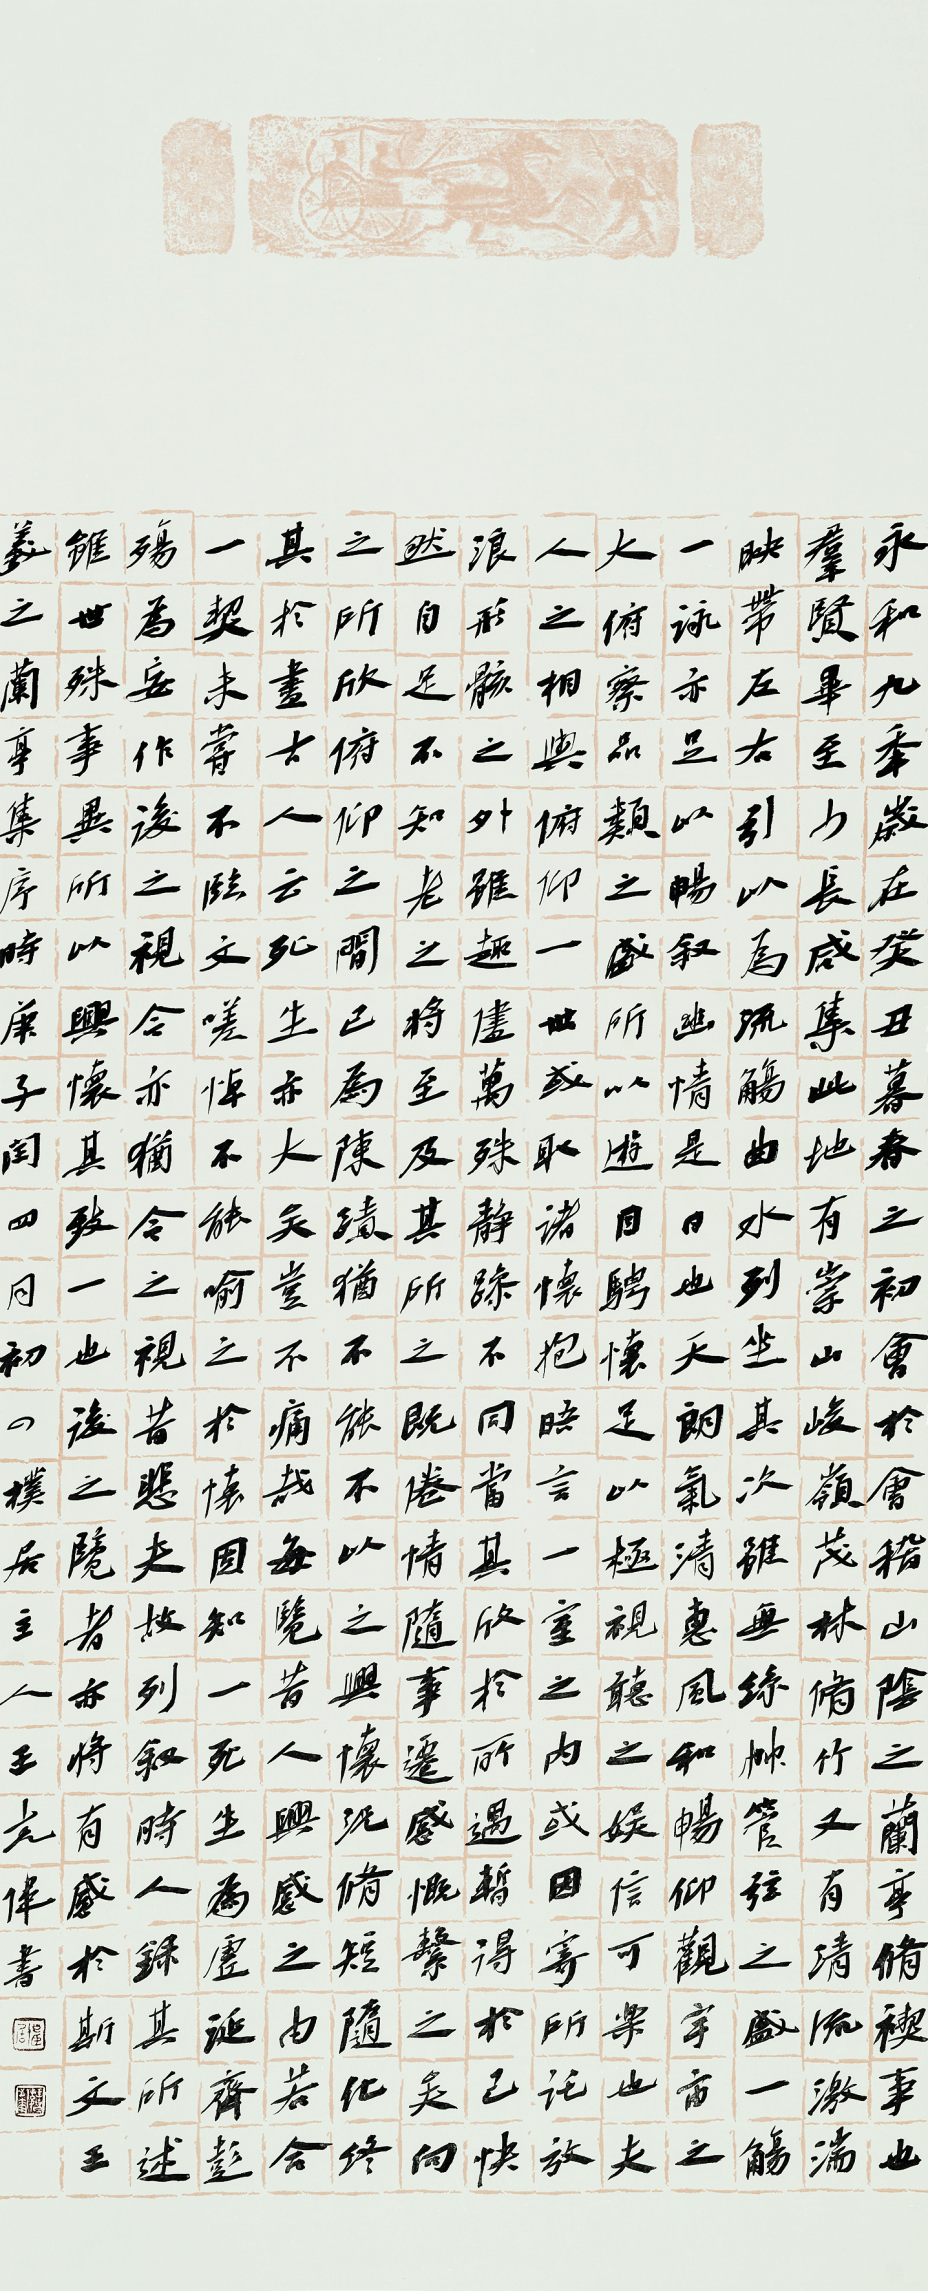 永和九年歲在癸丑暮春之初會於會稽山陰之蘭亭脩禊事也
羣賢畢至少長咸集此地有崇山峻嶺茂林脩竹又有清流激湍
映帶左右引以為流觴曲水列坐其次雖無絲竹管弦之盛一觴
一詠亦足以暢叙幽情是日也天朗氣清惠風和暢仰觀宇宙之
大俯察品類之盛所以遊目騁懷足以極視聽之娛信可樂也夫
人之相與俯仰一世或取諸懷抱晤言一室之內或因寄所託放
浪形骸之外雖趣萬殊靜躁不同當其欣於所遇暫得於己快
然自足不知老之將至及其所之既惓情隨事遷感慨繫之矣向
之所欣俯仰之間已為陳蹟猶不能不以之興懷況脩短隨化終
其於盡古人云死生亦大矣豈不痛哉每覽昔人興感之由若合
一契未嘗不臨文嗟悼不能喻之於懷固知一死生為虛誕齊彭
殤為妄作後之視今亦猶今之視昔悲夫故列叙時人錄其所述
雖世殊事異所以興懷其致一也後之覽者亦將有感於斯文王
羲之蘭亭集序時庚子閏四月初八樸居主人王光偉書